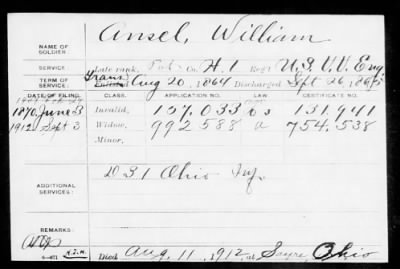 Ansel, William
NAME OF SOLDIER:
SERVICE: Late rank, Co. H 1 Reg't U.S.V.V. Eng.
TERM OF SERVICE: Trans Enlisted Aug 20, 1864 Discharged Sept 26, 1865
DATE OF FILING. CLASS. APPLICATION NO. LAW. CERTIFICATE NO.
1870 June 3 Invalid, 157.033 131.941
1912 Sept 3 Widow, 992588 a 754.538
Minor,
D 31 Ohio Inf.
ADDITIONAL SERVICES:
REMARKS:
Died Aug. 11, 1912, at Sayre, Ohio